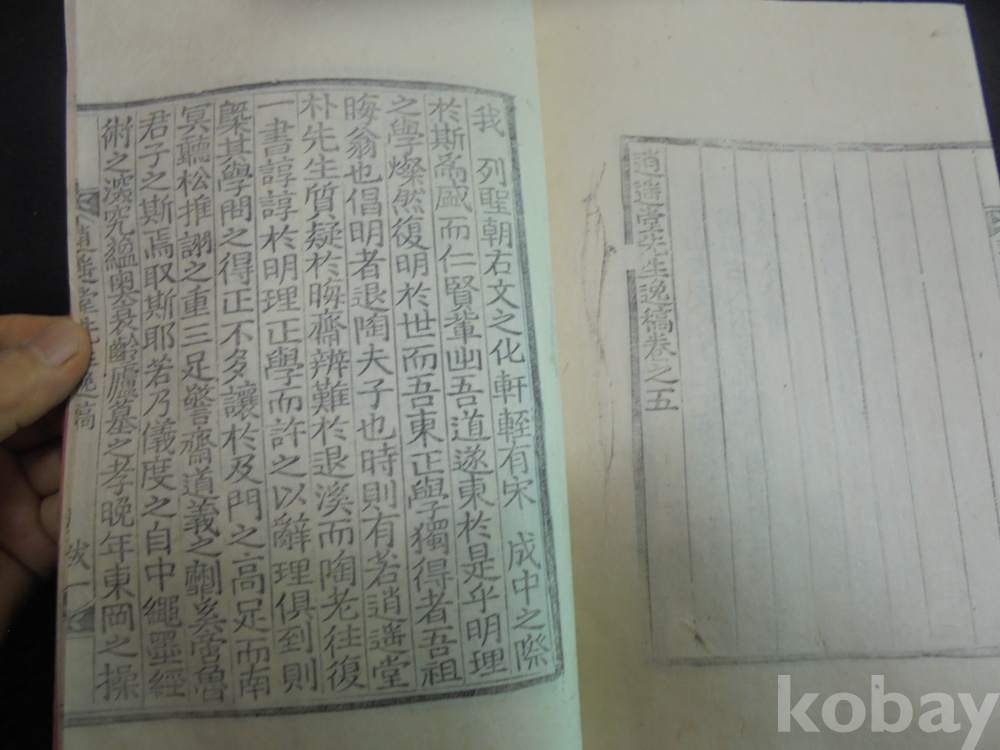 逍遥堂先生逸稿卷之五
我 列聖朝右文之化軒輊有宋 成中之際
於斯爲盛而仁賢輩出吾道遂東於是乎明理
之學燦然復明於世而吾東正學獨得者吾祖
晦翁也倡明者退陶夫子也時則有若逍遥堂
朴先生質疑於晦齋辨難於退溪而陶老往復
一書諄諄於明理正學而許之以辭理俱到則
槩其學問之得正不多讓於及門之高足而南
冥聽松推詡之重三足警齋道義之劘奚啻魯
君子之斯焉取斯耶若乃儀度之自中繩墨經
術之深究蘊奥衰齡廬墓之孝晚年東岡之操
逍遥堂先生逸稿
跋 一
kobay